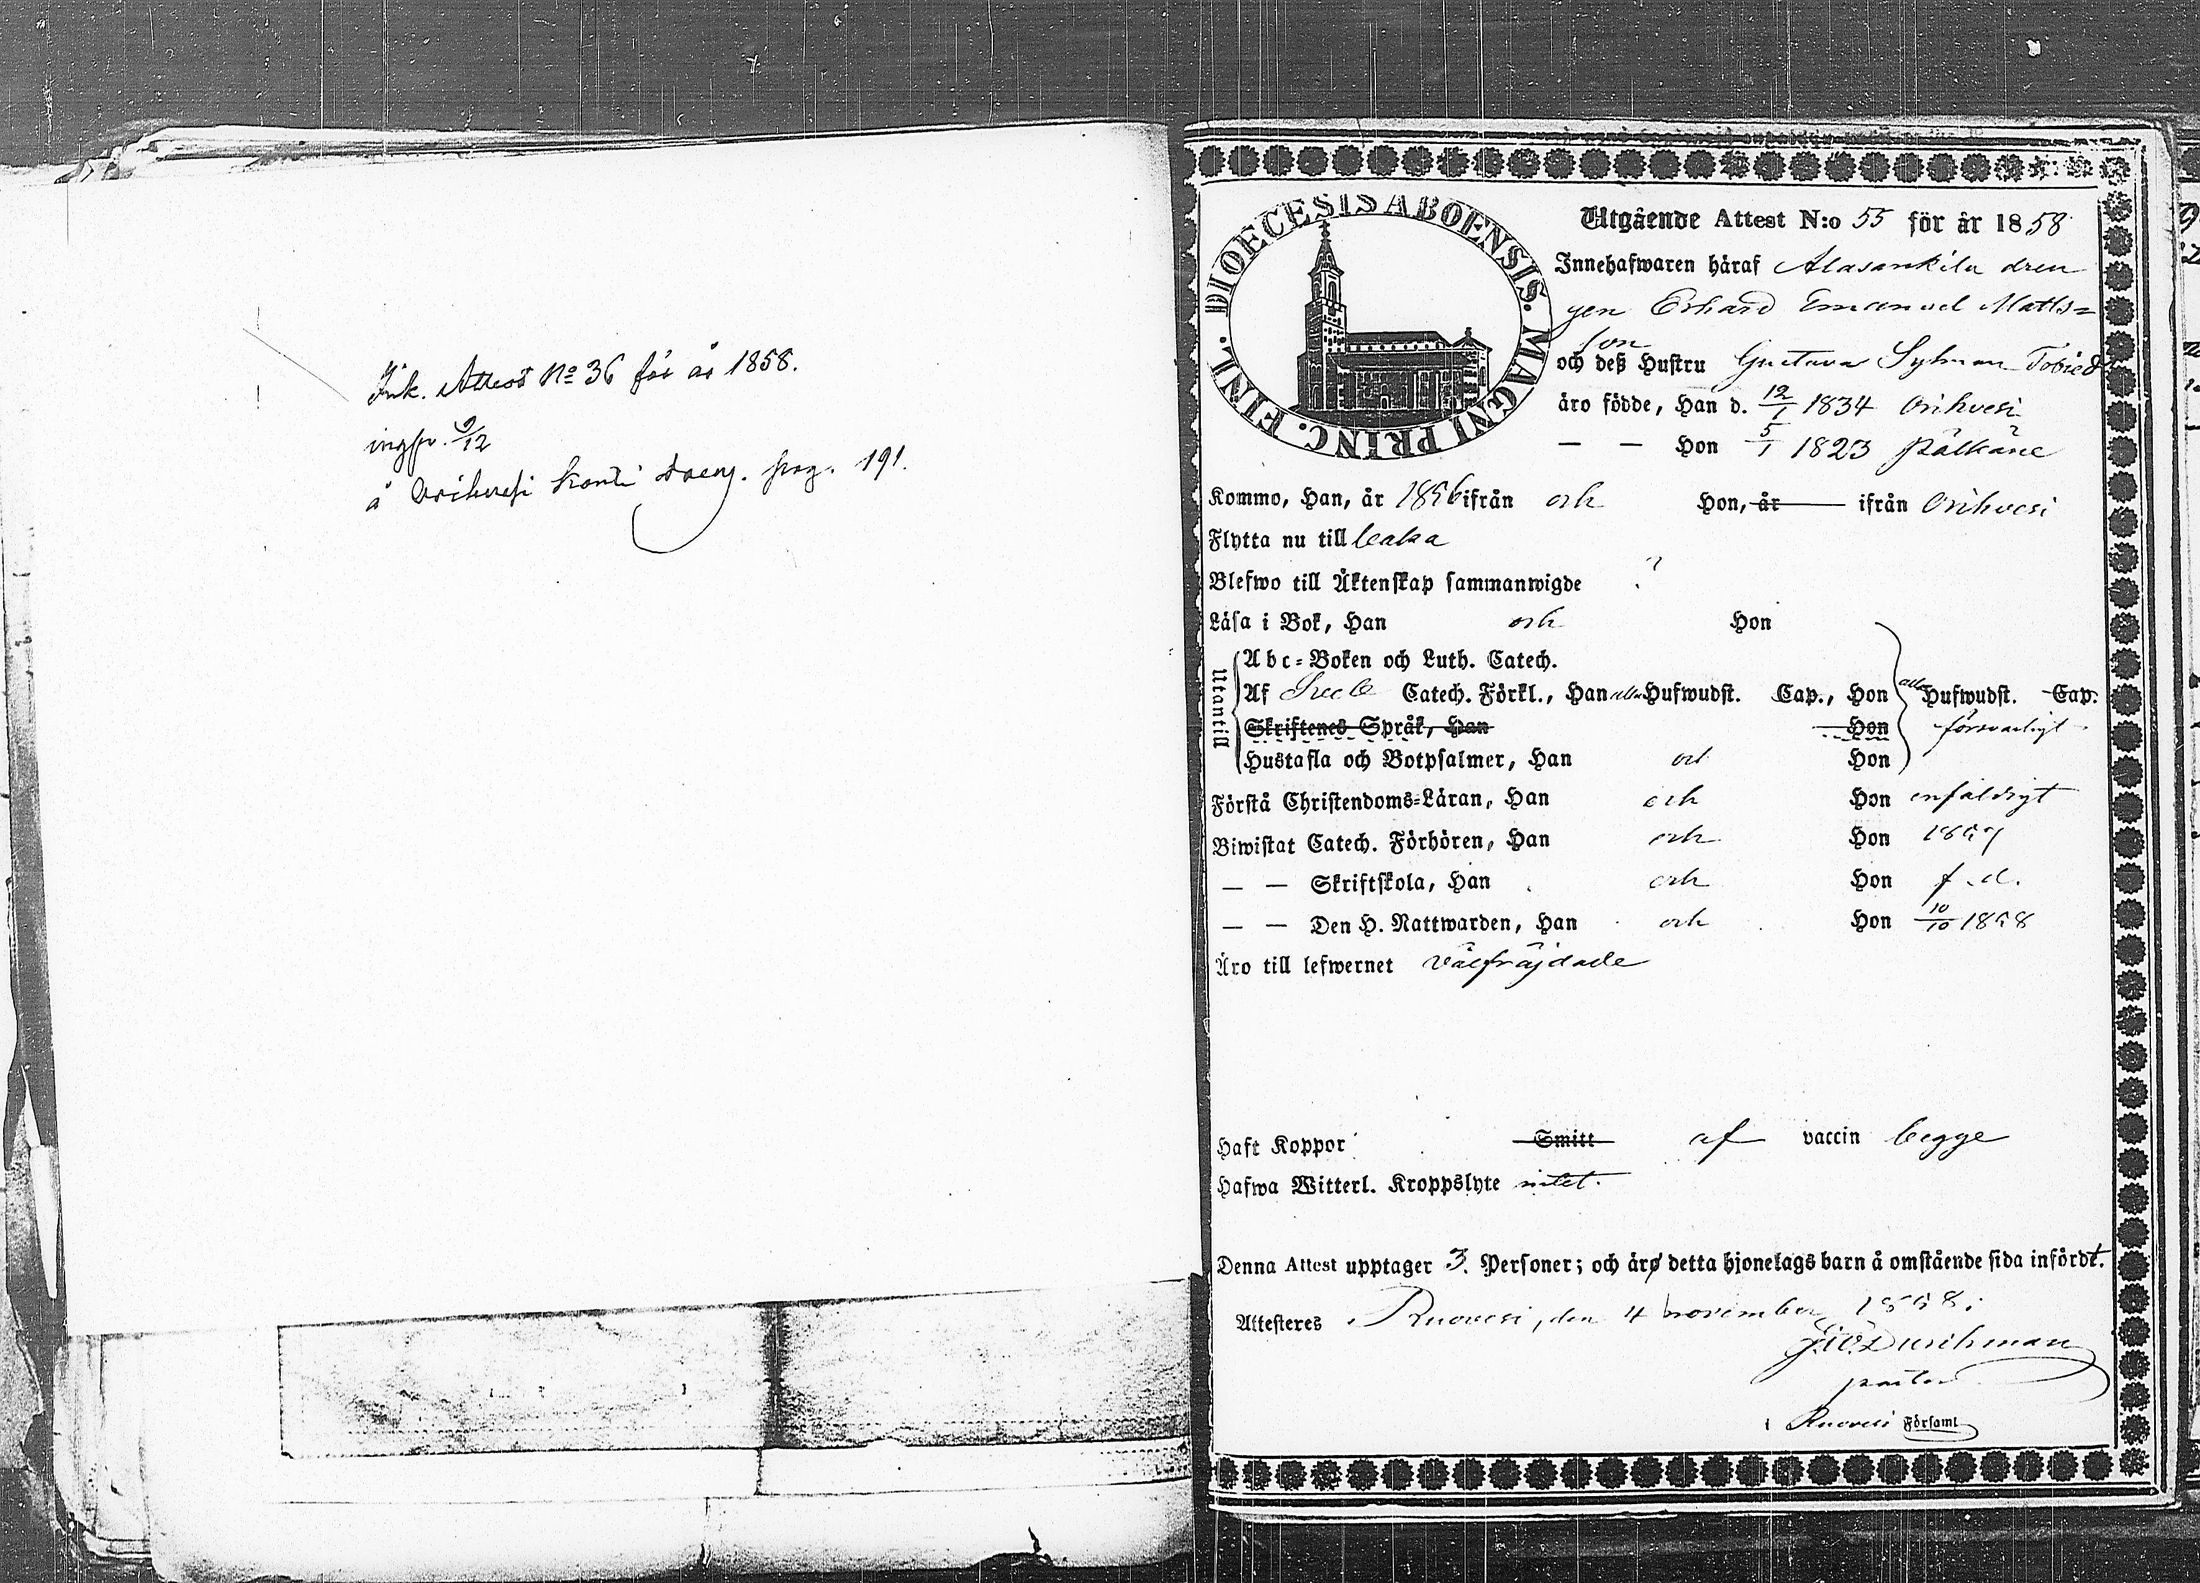 Ink. Attest No 36 för år 1858.
ingfv. 9/12
å Orihvesi Konti dreng. pag. 191.
DIOECESIS ABOENSIS. MAGNI PRINC. FINL.
Utgående Attest N:o 55 för år 1858
Innehafwaren häraf Alasankila dren
gen Erhard Emanuel Matts=
son
och deß Hustru Gustava Sylman Tobied
äro födde, Han d. 12/1 1834 Orihvesi
— — Hon 5/1 1823 Pälkäne
Kommo, Han, år 1856 ifrån och Hon, år ifrån Orihvesi
Flytta nu till baka
Blefwo till Äktenskap sammanwigde ?
Läsa i Bok, Han och Hon
Utantill
Abc=Boken och Luth. Catech.
Af Catech. Förkl., Han alla Hufwudst. Cap., Hon alla Hufwudst. Cap.
Skriftenes Språk, Han Hon försvarligt
Hustafla och Botpsalmer, Han och Hon
Förstå Christendoms=Läran, Han och Hon enfaldigt
Biwistat Catech. Förhören, Han och Hon 1857
— — Skriftskola, Han och Hon f.d.
— — Den H. Nattwarden, Han och Hon 10/10 1858
Äro till lefwernet välfräjdade
Haft Koppor Smitt af vaccin begge
Hafwa Witterl. Kroppslyte intet.
Denna Attest upptager 3. Personer; och äro detta hjonelags barn å omstående sida infördt.
Attesteres Ruovesi, den 4 november 1858.
Durchman
pastor
i Ruovesi Församl